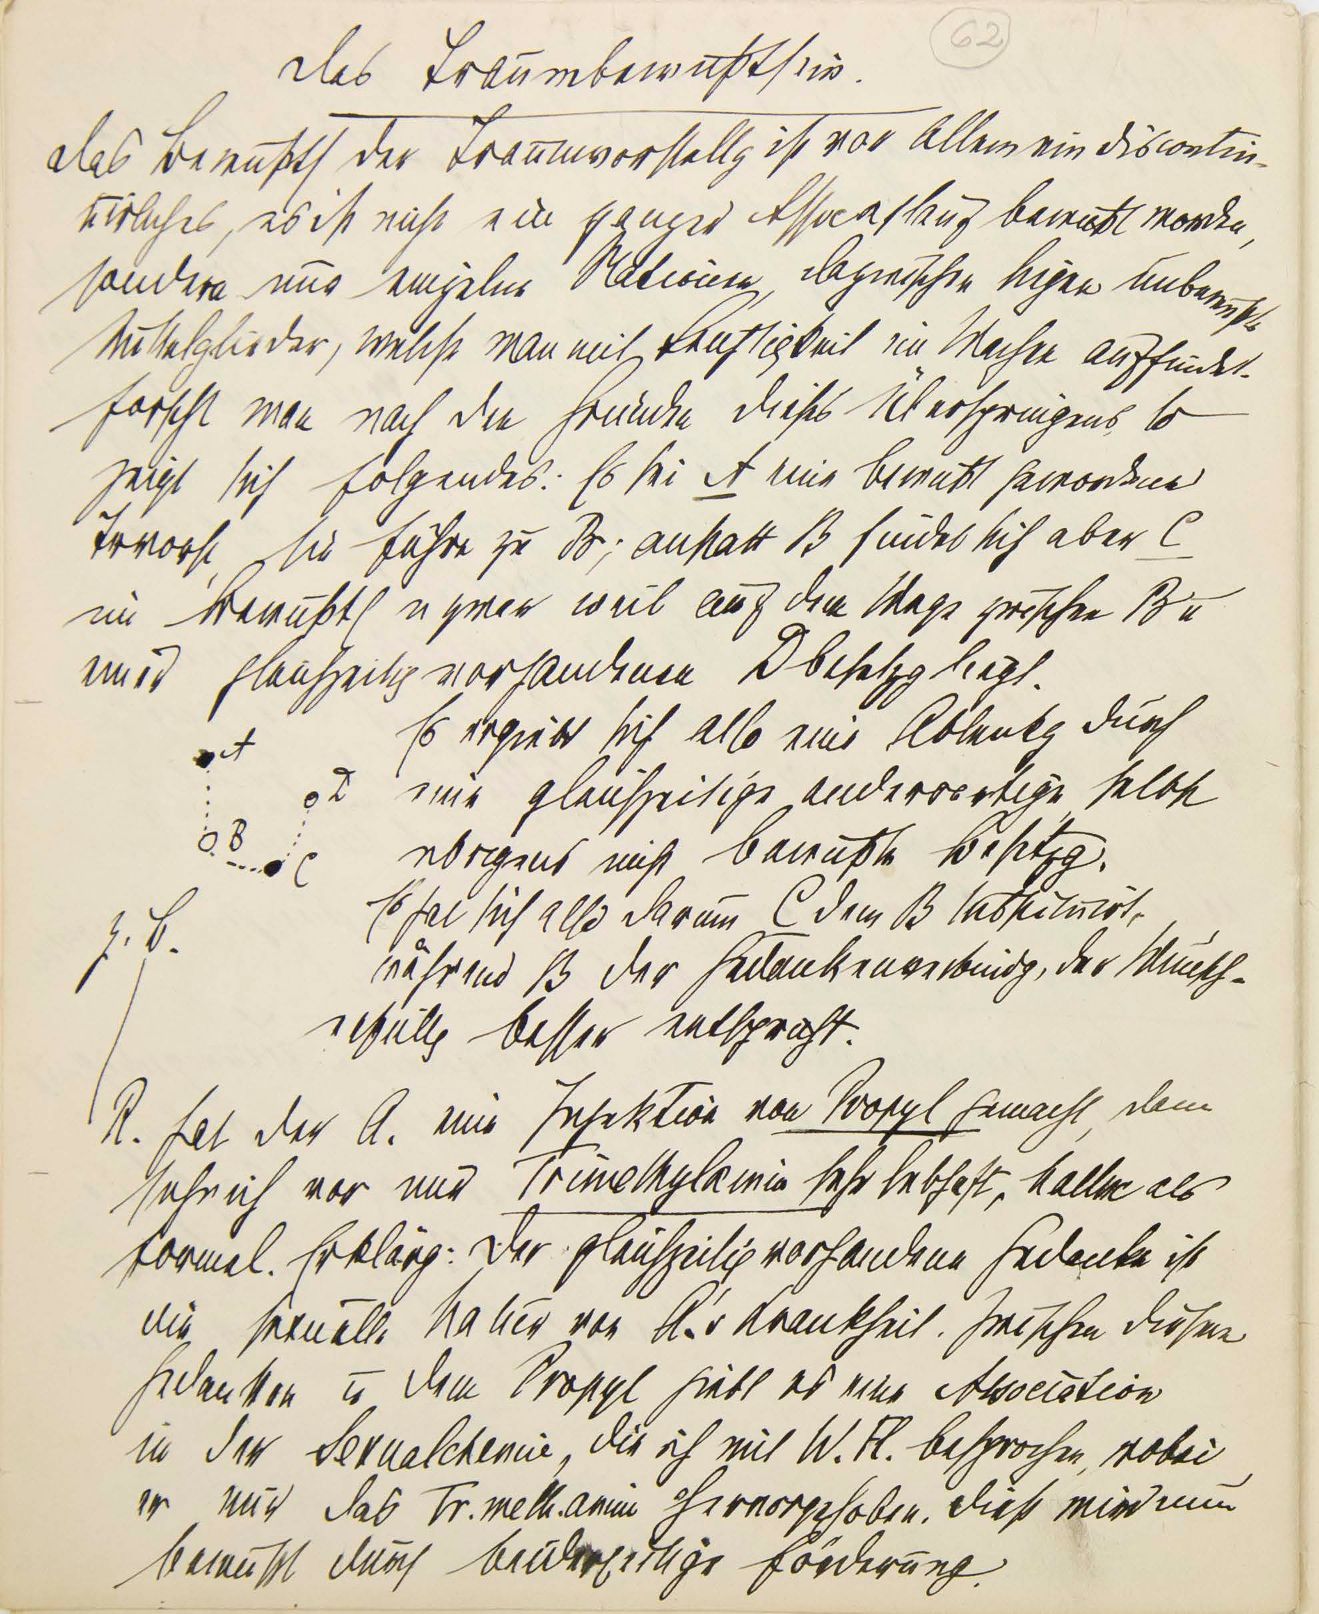 62
Das Traumbewußtsein.
Das Bewußts der Traumvorstellg ist vor Allem ein discontin-
uirliches, es ist nicht ein ganzer Associations bewußt worden,
sondern nur einzelne Stationen, dazwischen liegen unbewußte
Mittelglieder, welche man mit Leichtigkeit im Wachen auffindet.
Forscht man nach den Gründen dieses Überspringens, so
zeigt sich folgendes: Es sei A eine bewußt gewordene
Trvorst, sie führe zu B; anstatt B findet sich aber C
im Bewußts u zwar weil auf dem Wege zwischen B u
einer gleichzeitig vorhandenen D besetzg liegt.
Es ergiebt sich also eine Ablenkg durch
eine gleichzeitige, anderwertige, selbst
übrigens nicht bewußte Besetzg.
Es hat sich also darum C dem B substituirt,
während B der Gedankenverbindg, der Wunsch-
erfüllg besser entspricht.
A
D
B
C
z. B.
R. hat der A. eine Injektion von Propyl gemacht, dann
sehe ich vor mir Trimethylamin sehr lebhaft, halluc als
Formel. Erklärg: Der gleichzeitig vorhandene Gedanke ist
die sexuelle Natur von A.'s Krankheit. Zwischen diesem
Gedanken u dem Propyl giebt es eine Association
in der Sexualchemie, die ich mit W. Fl. besprochen, wobei
er mir das Tr.meth.amin hervorgehoben. Dieß wird nun
bewußt durch beiderseitige Förderung.